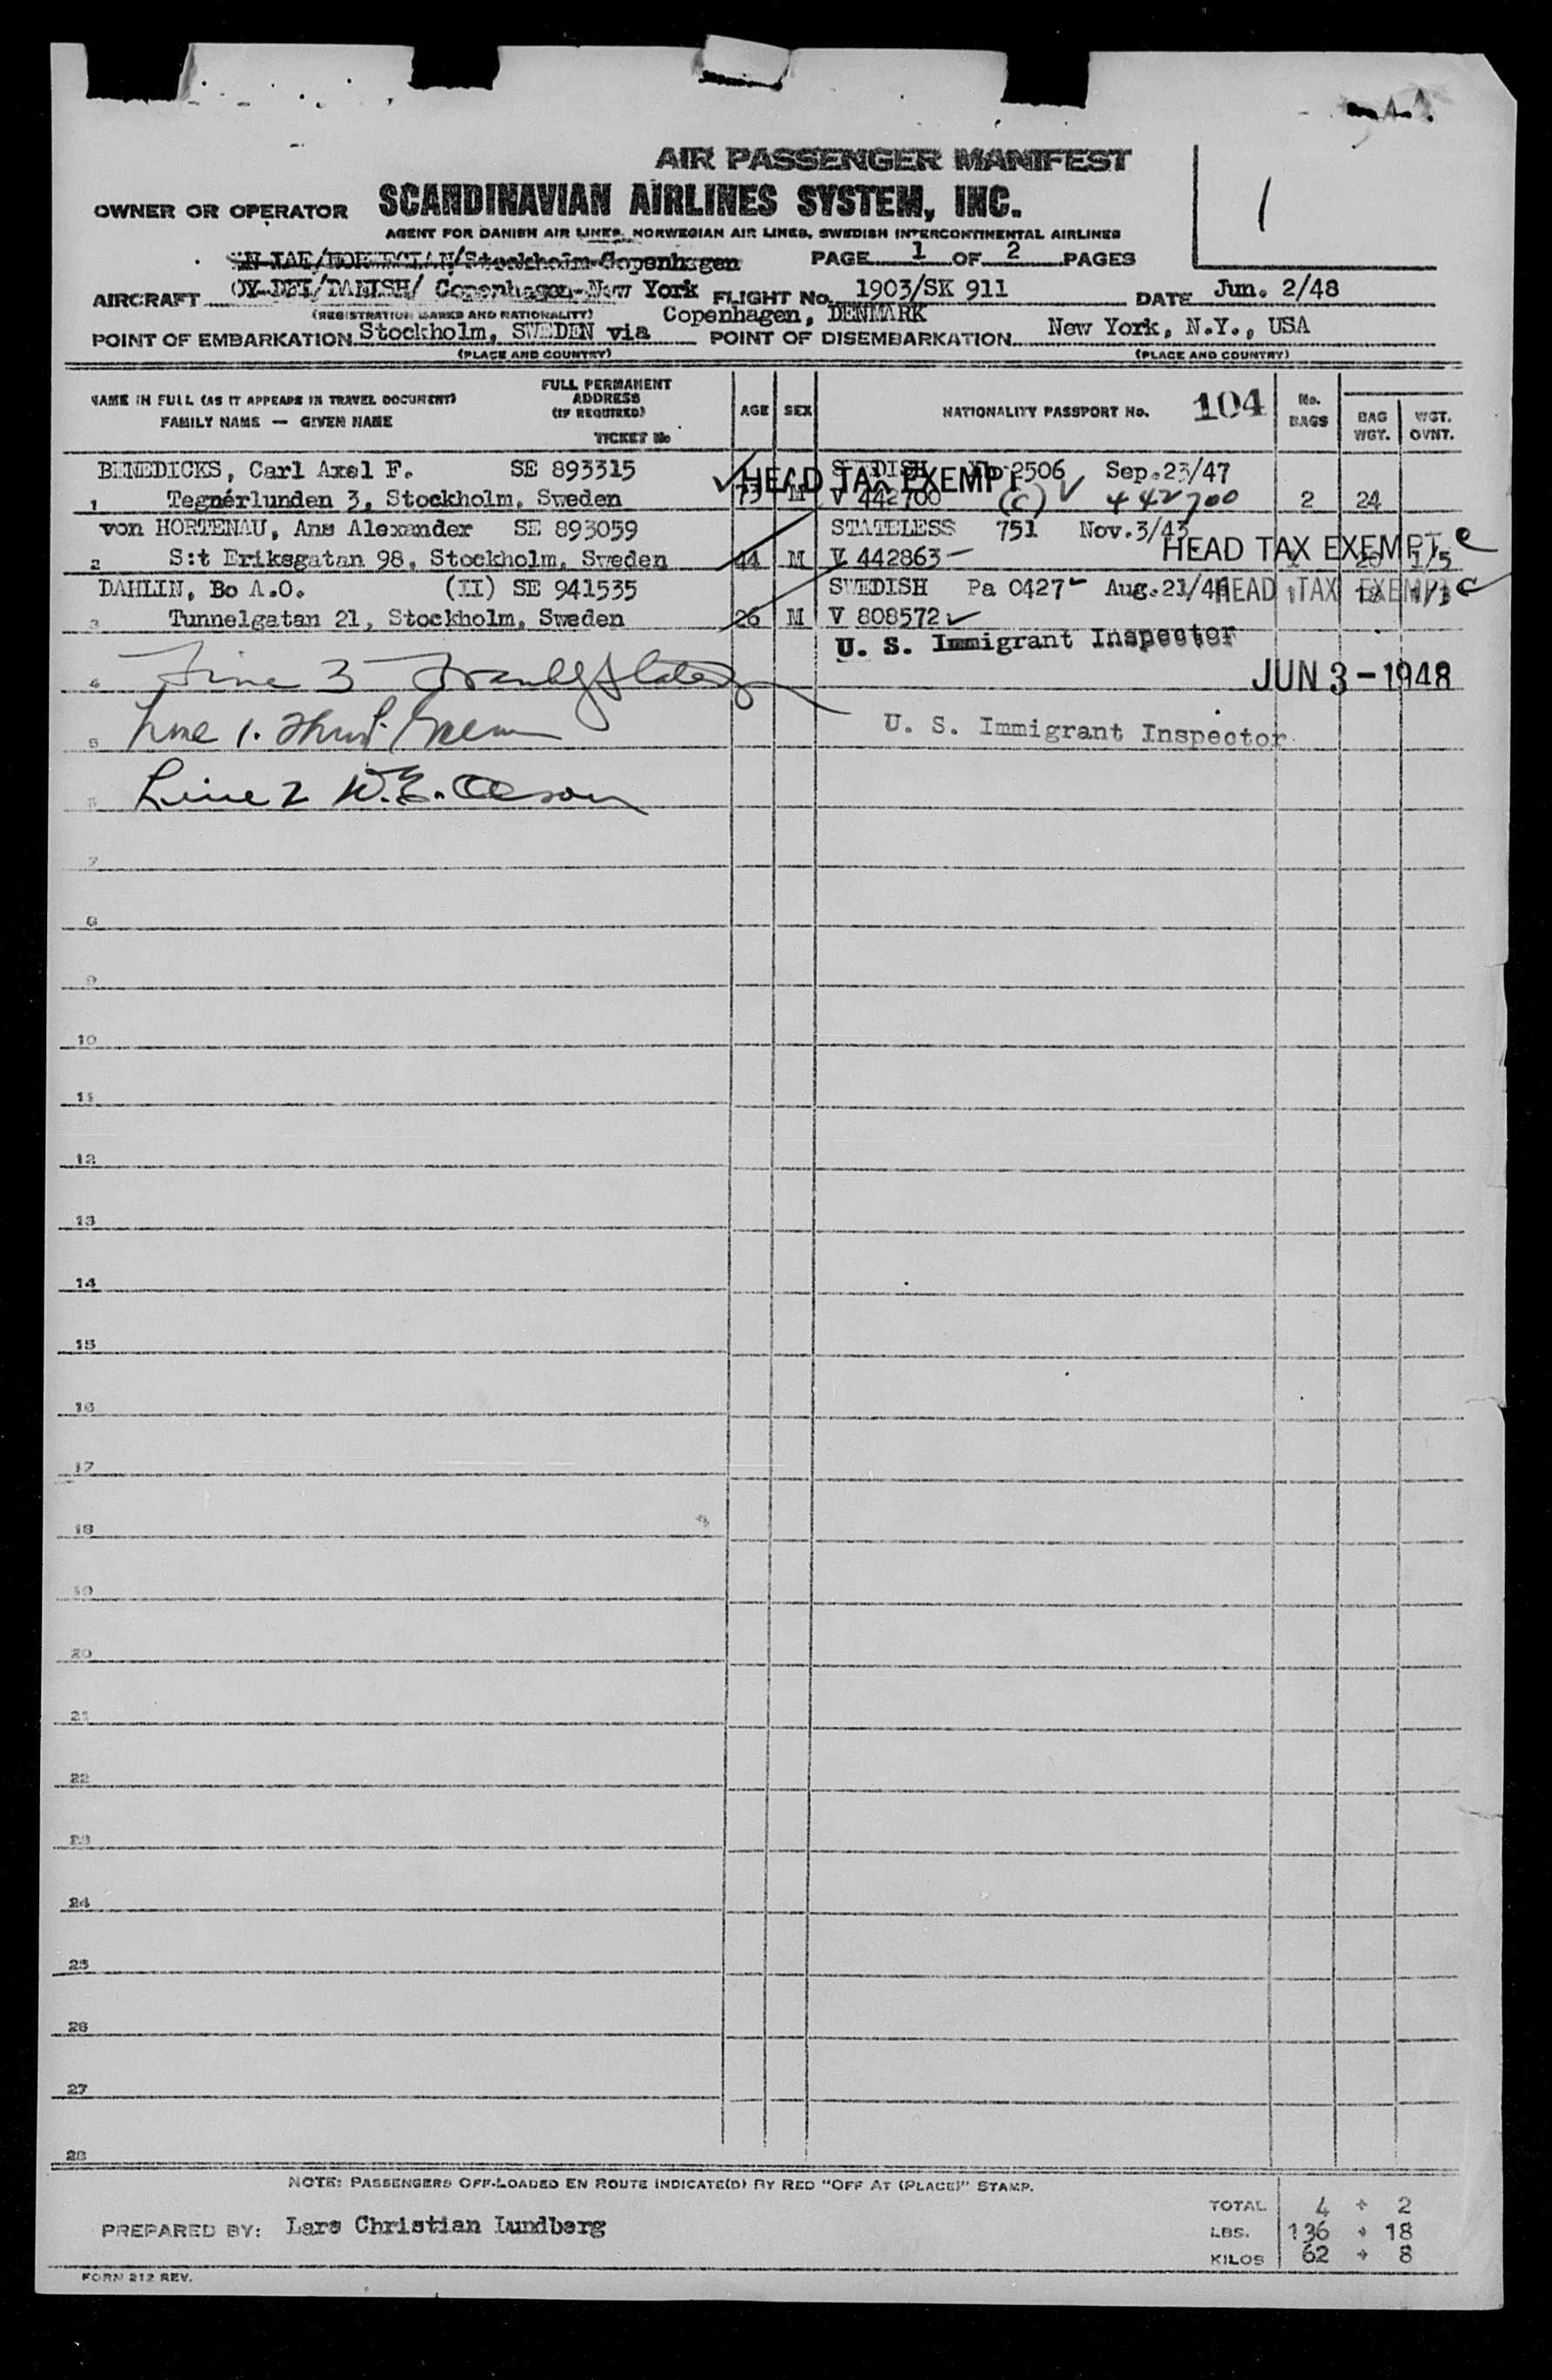 AIR PASSENGER MANIFEST
1
OWNER OR OPERATOR SCANDINAVIAN AIRLINES SYSTEM, INC.
AGENT FOR DANISH AIR LINES, NORWEGIAN AIR LINES, SWEDISH INTERCONTINENTAL AIRLINES
/NORWEGIAN/Stockholm-Copenhagen PAGE 1 OF 2 PAGES
AIRCRAFT /DANISH/ Copenhagen-New York FLIGHT No. 1903/SK 911 DATE Jun. 2/48
(REGISTRATION MARKS AND NATIONALITY) Copenhagen, DENMARK
POINT OF EMBARKATION Stockholm, SWEDEN via POINT OF DISEMBARKATION New York, N.Y., USA
(PLACE AND COUNTRY) (PLACE AND COUNTRY)
NAME IN FULL (AS IT APPEARS IN TRAVEL DOCUMENT)
FAMILY NAME — GIVEN NAME
FULL PERMANENT
ADDRESS
(IF REQUIRED)
TICKET No
AGE SEX NATIONALITY PASSPORT No. 104 No. BAGS BAG WGT. WGT. OVNT.
BENEDICKS, Carl Axel F. SE 893315 SWEDISH 2506 Sep.23/47
HEAD TAX EXEMPT
1 Tegnérlunden 3, Stockholm, Sweden 73 M V 442700 (C) 442700 2 24
von HORTENAU, Ans Alexander SE 893059 STATELESS 751 Nov.3/43
HEAD TAX EXEMPT c
2 S:t Eriksgatan 98, Stockholm, Sweden 44 M V 442863 20 1/5
DAHLIN, Bo A.O. (II) SE 941535 SWEDISH Pa 0427 Aug.21/46 HEAD TAX EXEMPT c
3 Tunnelgatan 21, Stockholm, Sweden 26 M V 808572
U. S. Immigrant Inspector
4 Line 3
JUN 3 - 1948
5 Line 1.
U. S. Immigrant Inspector
Line 2 W.E. Olesow
7
8
9
10
11
12
13
14
15
16
17
18
19
20
21
22
23
24
25
26
27
28
NOTE: PASSENGERS OFF-LOADED EN ROUTE INDICATE(D) BY RED "OFF AT (PLACE)" STAMP.
TOTAL 4 + 2
PREPARED BY: Lars Christian Lundberg
LBS. 136 + 18
KILOS 62 + 8
FORM 212 REV.